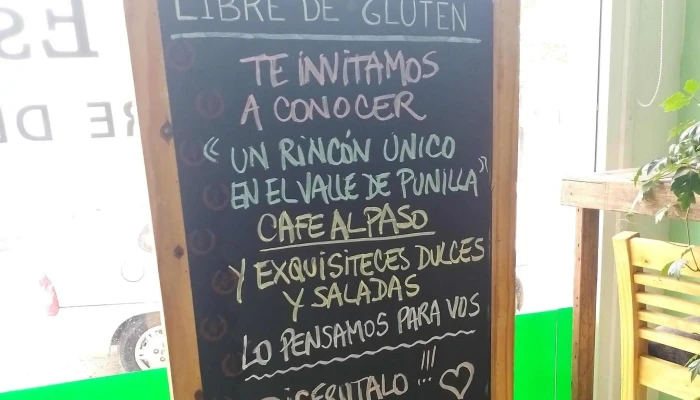 LIBRE DE GLUTEN
TE INVITAMOS
A CONOCER
“UN RINCÓN ÚNICO
EN EL VALLE DE PUNILLA”
CAFE AL PASO
Y EXQUISITECES DULCES
Y SALADAS
LO PENSAMOS PARA VOS
DISFRUTALO!!!